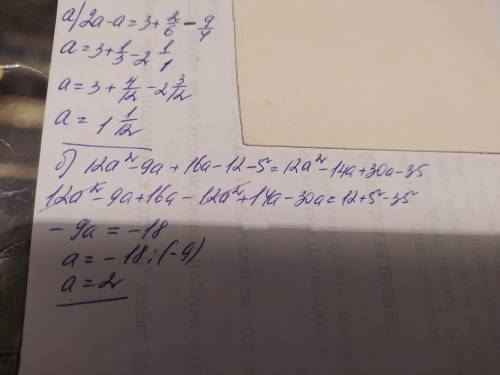 а) 2a-a = 3 + 2/6 - 9/4
a = 3 + 1/3 - 2 1/1
a = 3 + 4/12 - 2 3/12
a = 1 1/12
б) 12a² - 9a + 16a - 12 - 5 = 12a² - 14a + 30a - 35
12a² - 9a + 16a - 12a² + 14a - 30a = 12 + 5 - 35
- 9a = -18
a = -18 : (-9)
a = 2